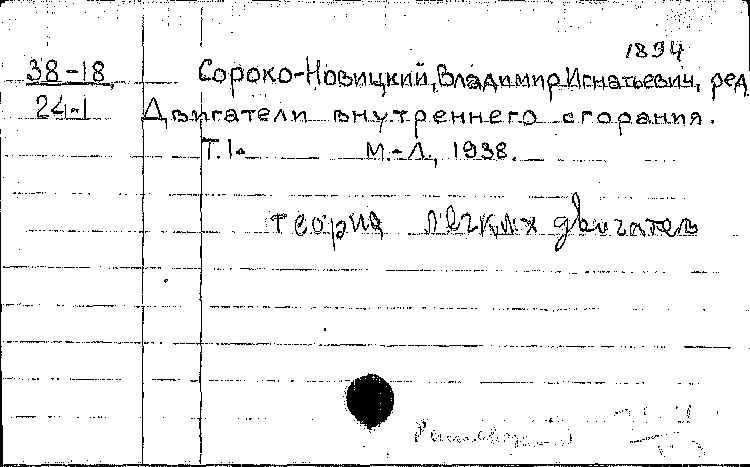 1894
38-18 Сороко-Новицкий, Владимир Игнатьевич, ред
24-1 Двигатели внутреннего сгорания.
Т.1. М.-Л., 1938.
теория легких двигателей